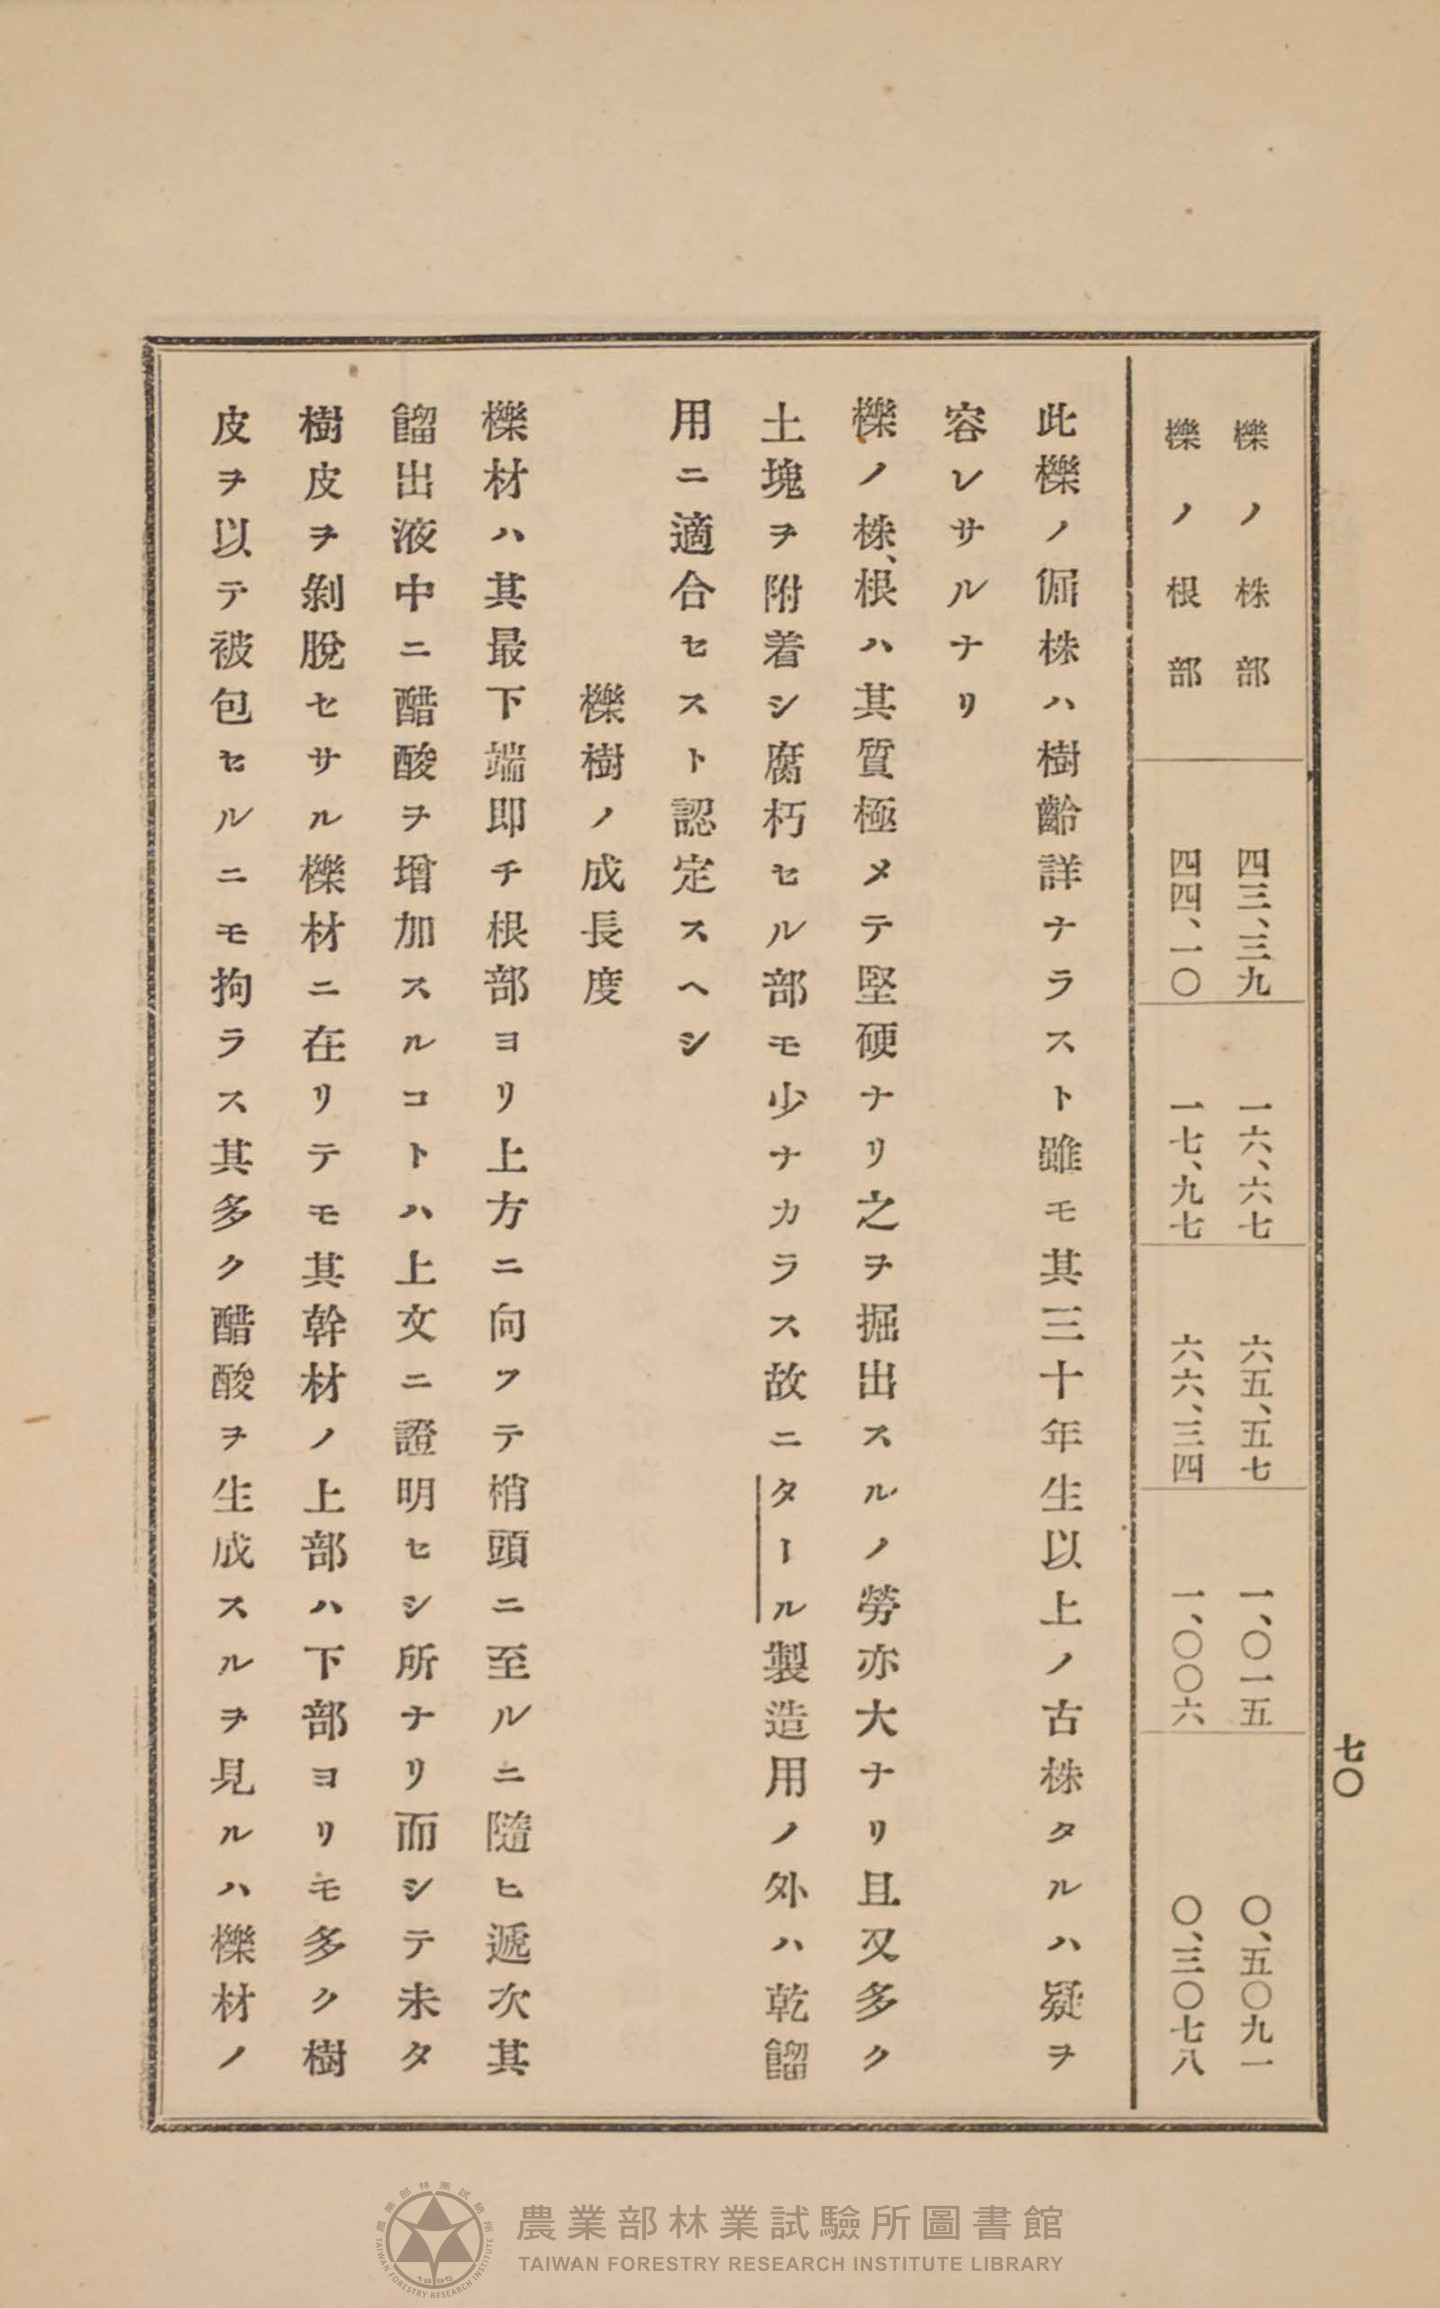 七〇
櫟ノ株部 四三、三九 一六、六七 六五、五七 一、〇一五 〇、五〇九一
櫟ノ根部 四四、一〇 一七、九七 六六、三四 一、〇〇六 〇、三〇七八
此櫟ノ倔株ハ樹齡詳ナラスト雖モ其三十年生以上ノ古株タルハ疑ヲ
容レサルナリ
櫟ノ株、根ハ其質極メテ堅硬ナリ之ヲ掘出スルノ勞亦大ナリ且又多ク
土塊ヲ附着シ腐朽セル部モ少ナカラス故ニタール製造用ノ外ハ乾餾
用ニ適合セスト認定スヘシ
櫟樹ノ成長度
櫟材ハ其最下端即チ根部ヨリ上方ニ向フテ梢頭ニ至ルニ隨ヒ遞次其
餾出液中ニ醋酸ヲ增加スルコトハ上文ニ證明セシ所ナリ而シテ未タ
樹皮ヲ剝脫セサル櫟材ニ在リテモ其幹材ノ上部ハ下部ヨリモ多ク樹
皮ヲ以テ被包セルニモ拘ラス其多ク醋酸ヲ生成スルヲ見ルハ櫟材ノ
農業部林業試驗所圖書館
TAIWAN FORESTRY RESEARCH INSTITUTE LIBRARY
農業部林業試驗所
TAIWAN FORESTRY RESEARCH INSTITUTE
1896